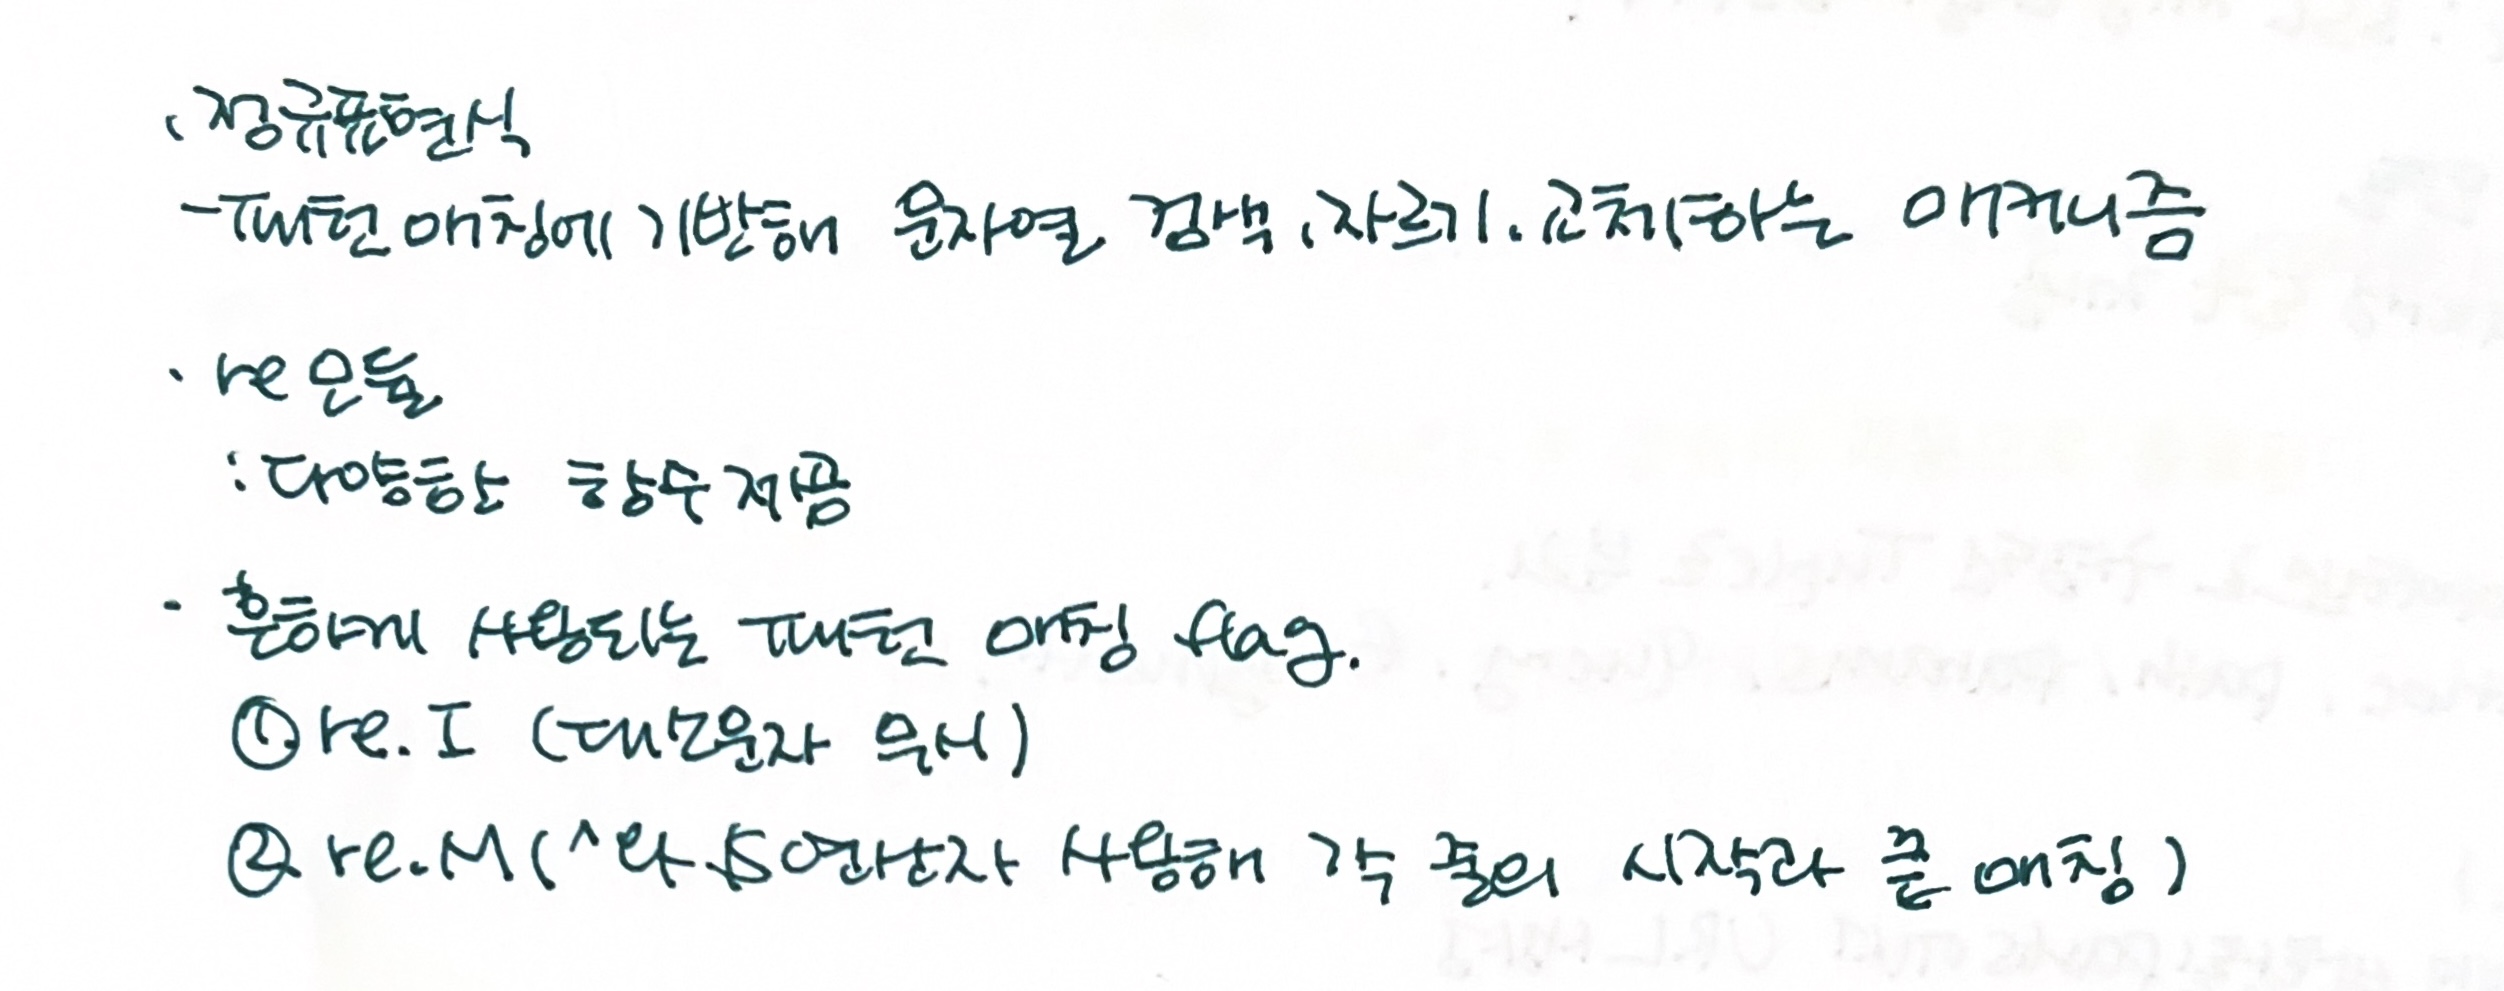 · 정규표현식
- 패턴 매칭에 기반해 문자열 검색, 자르기, 교체하는 매커니즘
· re 모듈
: 다양한 함수 제공
· 흔하게 사용되는 패턴 매칭 flag.
① re. I (대소문자 무시)
② re.M (^와 $연산자 사용해 각 줄의 시작과 끝 매칭)